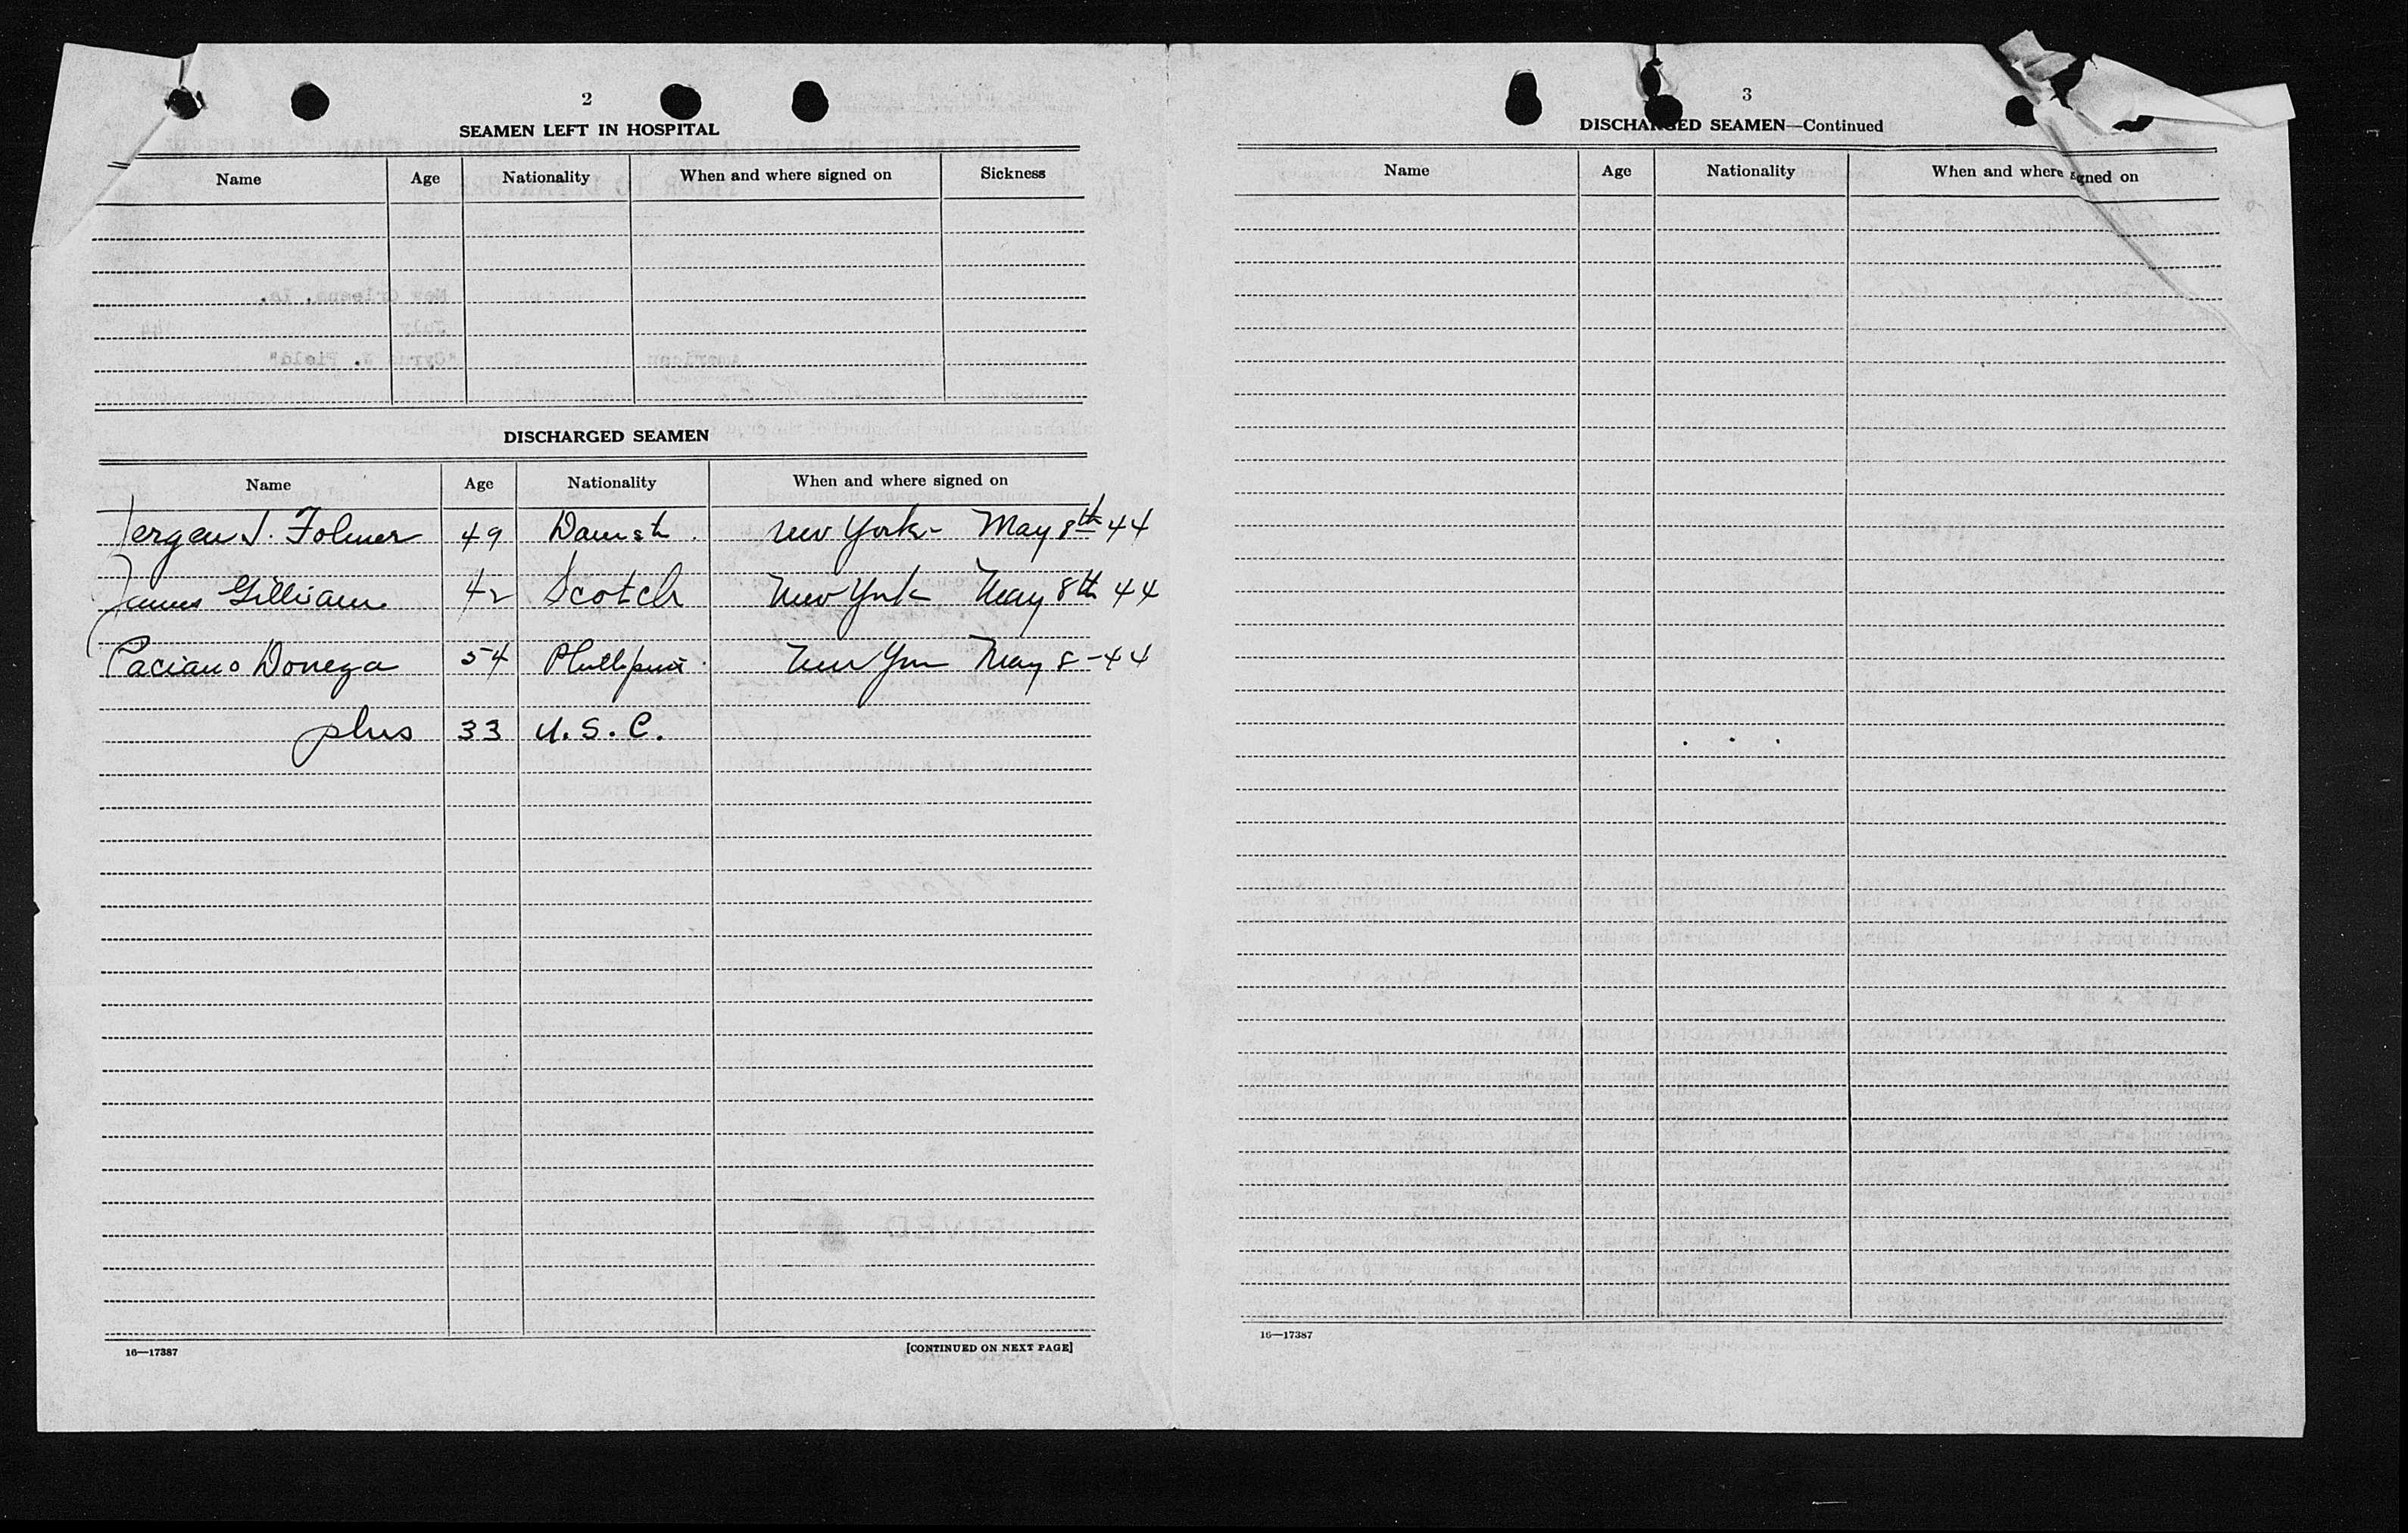 2
SEAMEN LEFT IN HOSPITAL
Name Age Nationality When and where signed on Sickness
DISCHARGED SEAMEN
Name Age Nationality When and where signed on
Jergen J. Folmer 49 Danish New York - May 8th 44
James Gilliam 42 Scotch New York May 8th 44
Paciano Donega 54 New York May 8 - 44
plus 33 U.S.C.
16—17387 [CONTINUED ON NEXT PAGE]
3
DISCHARGED SEAMEN—Continued
Name Age Nationality When and where signed on
16—17387